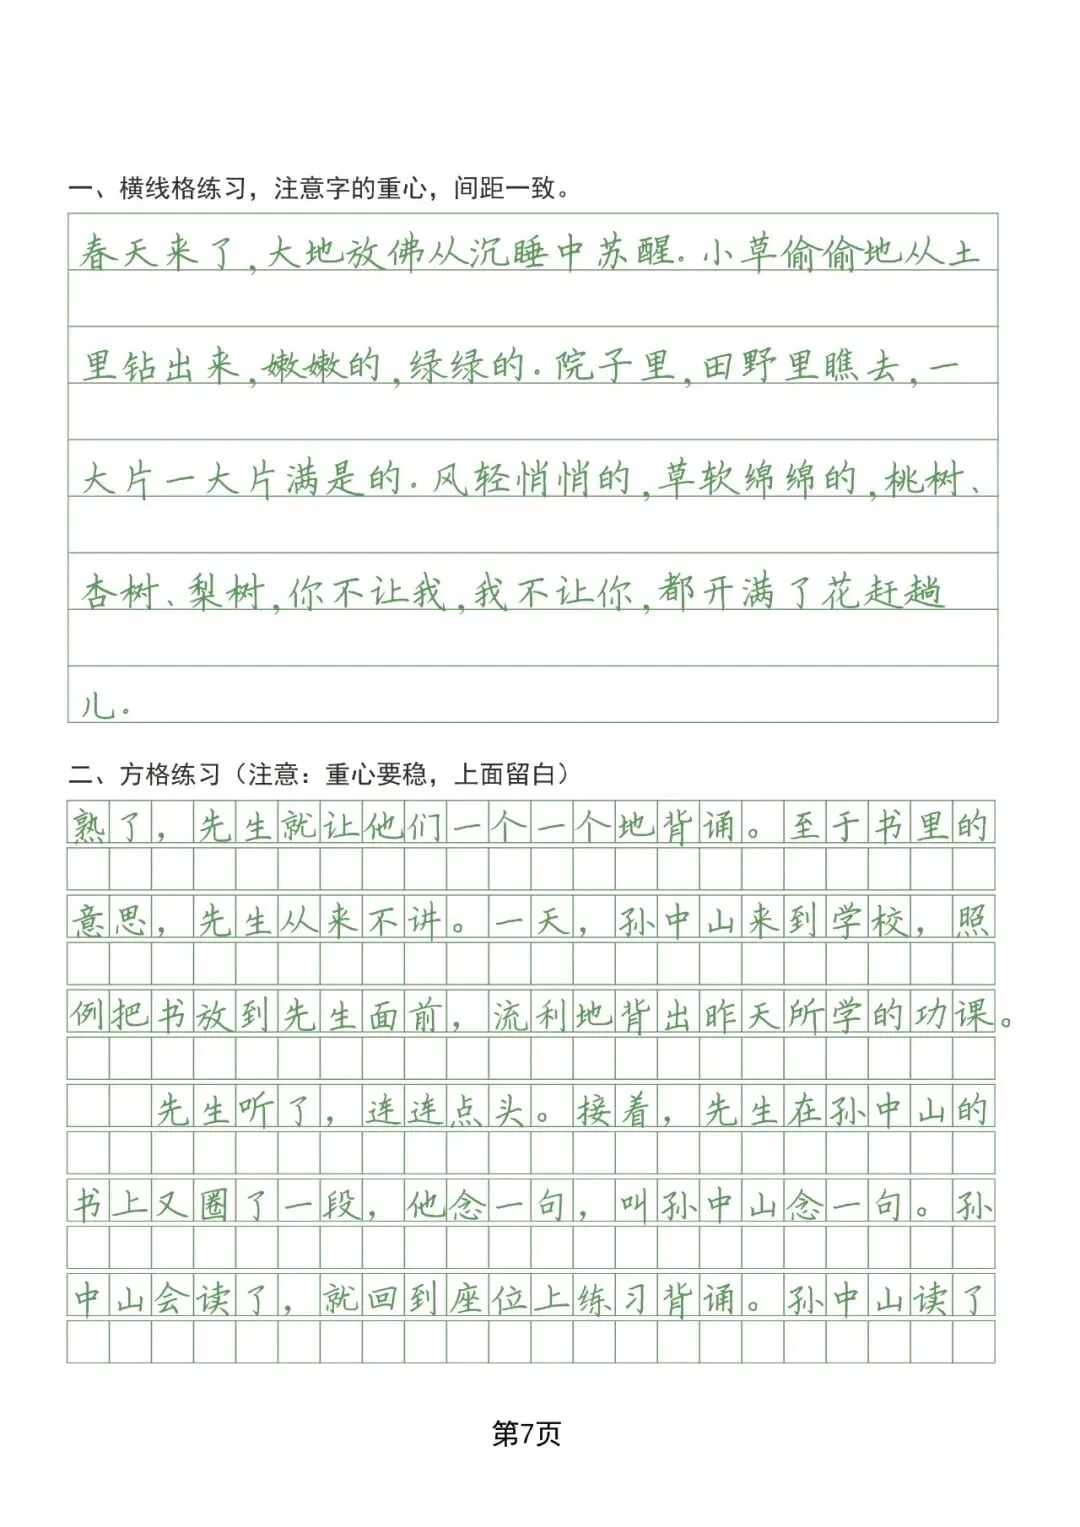 一、横线格练习，注意字的重心，间距一致。
春天来了,大地放佛从沉睡中苏醒.小草偷偷地从土
里钻出来,嫩嫩的,绿绿的.院子里,田野里瞧去,一
大片一大片满是的.风轻悄悄的,草软绵绵的,桃树、
杏树、梨树,你不让我,我不让你,都开满了花赶趟
儿.
二、方格练习（注意：重心要稳，上面留白）
熟了，先生就让他们一个一个地背诵。至于书里的
意思，先生从来不讲。一天，孙中山来到学校，照
例把书放到先生面前，流利地背出昨天所学的功课。
先生听了，连连点头。接着，先生在孙中山的
书上又圈了一段，他念一句，叫孙中山念一句。孙
中山会读了，就回到座位上练习背诵。孙中山读了
第7页